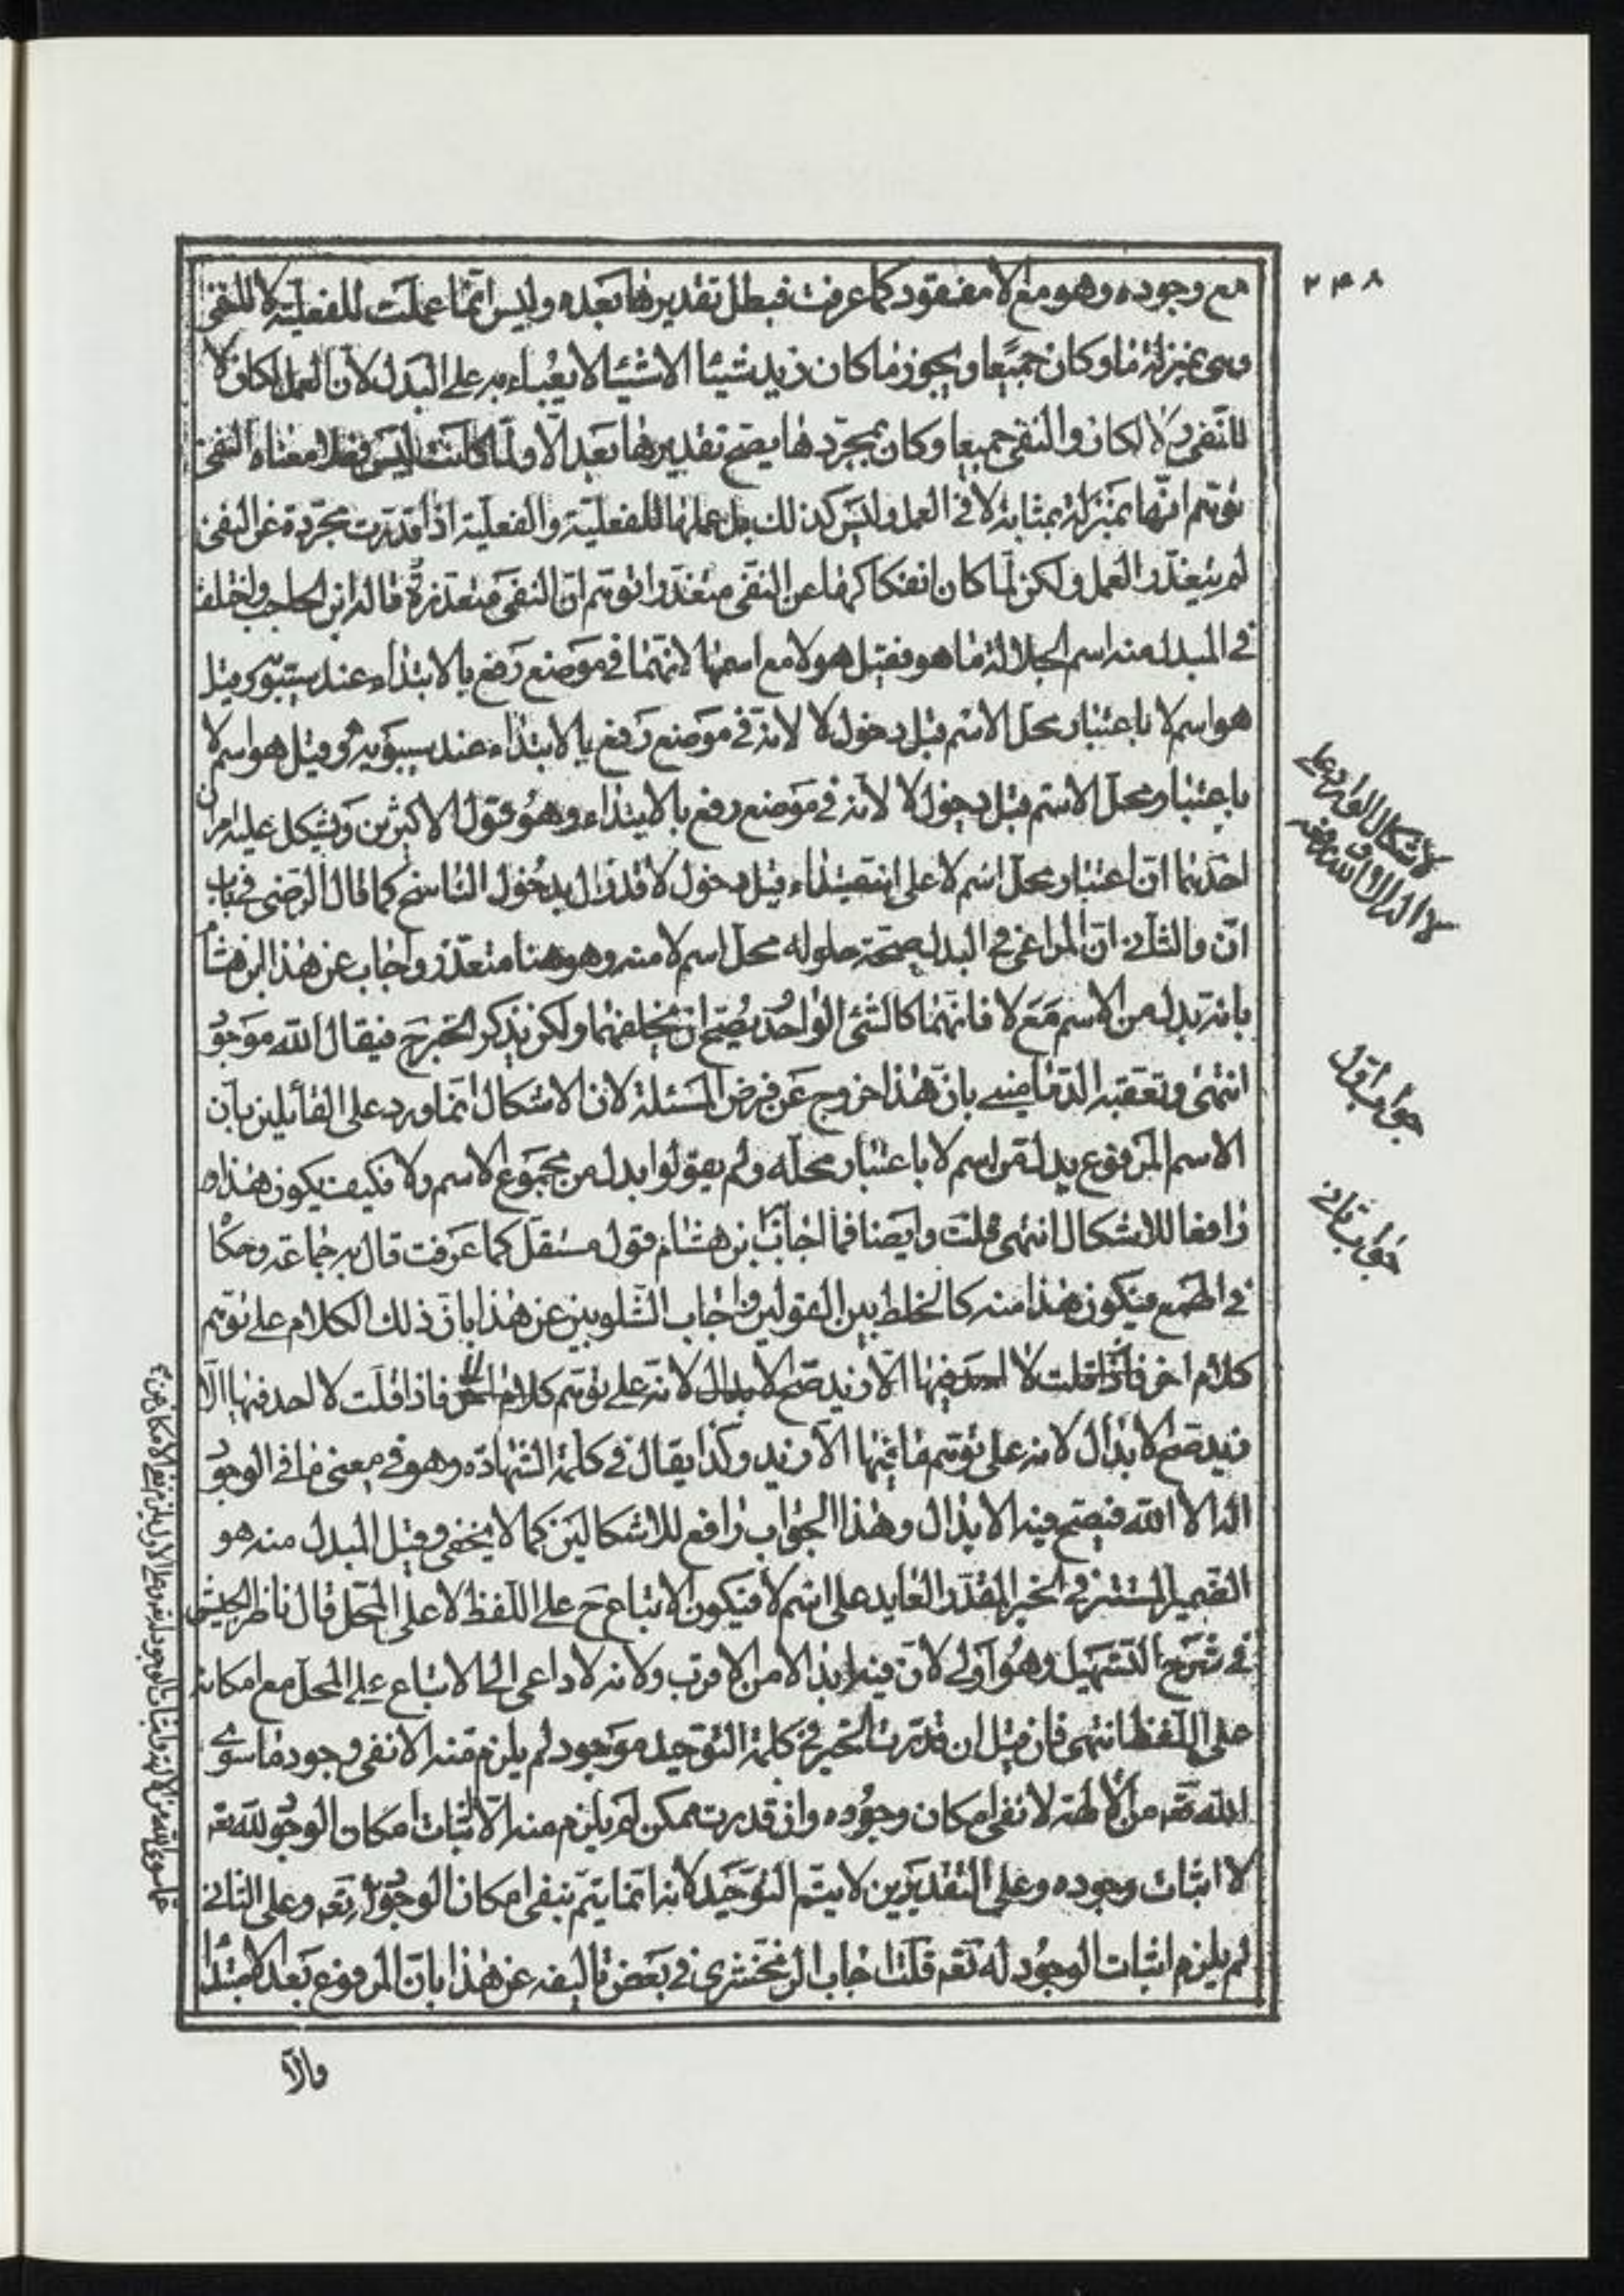 ۲۴۸
مع وجوده وهو مع لا مفقود كما عرفت فبطل تقديرها بعده وليس انما عملت للفعلية لا للنفى
وهى بمنزلة ما وكان جميعا ويجوز ما كان زيد شيئا الا شيئا لا يعباء به على البدل لان العمل لكان لا
للنفى ولا لكان والنفى جميعا وكان بمجردها يصح تقديرها بعد الا ولما كانت ليس فعلا معناه النفى
توهم انها بمنزلة بمثابة لا فى العمل وليس كذلك بل عملها للفعلية والفعلية اذا قدرت مجردة عن النفى
لم يتعذر العمل ولكن لما كان انفكاكها عن النفى متعذرا توهم ان النفى متعذرة قاله ابن الحاجب واختلف
فى المبدل منه اسم الجلالة ما هو فقيل هو لا مع اسمها لانهما فى موضع رفع بالابتداء عند سيبويه وقيل
هو اسم لا باعتبار محل الاسم قبل دخول لا لانه فى موضع رفع بالابتداء عند سيبويه وقيل هو اسم لا
باعتبار محل الاسم قبل دخول لا لانه فى موضع رفع بالابتداء وهو قول الاكثرين ويشكل عليه امران
احدهما ان اعتبار محل اسم لا على انه مبتداء قبل دخول لا قد زال بدخول الناسخ كما قال الرضى فى باب
ان والثانى ان المراعى فى البدل صحة حلوله محل اسم لا منه وهو هنا متعذر واجاب عن هذا ابن هشام
بانه بدل من الاسم مع لا فانهما كالشئ الواحد يصح ان يخلفهما ولكن يذكر الخبر ح فيقال الله موجود
انتهى وتعقبه الدمامينى بان هذا خروج عن فرض المسئلة لان الاشكال انما ورد على القائلين بان
الاسم المرفوع بدل من اسم لا باعتبار محله ولم يقولوا بدل من مجموع الاسم ولا فكيف يكون هذا
رافعا للاشكال انتهى قلت وايضا فما اجاب به ابن هشام قول مستقل كما عرفت قال به جماعة وحكاه
فى الهمع فيكون هذا منه كالخلط بين القولين واجاب الشلوبين عن هذا بان ذلك الكلام على توهم
كلام اخر فاذا قلت لا احد فيها الا زيد صح الابدال لانه على توهم كلام اخر فاذا قلت لا احد فيها الا
زيد صح الابدال لانه على توهم ما فيها الا زيد وكذا يقال فى كلمة الشهادة وهو فى معنى ما فى الوجود
اله الا الله فيصح فيه الابدال وهذا الجواب رافع للاشكالين كما لا يخفى وقيل المبدل منه هو
الضمير المستتر فى الخبر المقدر العايد على اسم لا فيكون الاتباع ح على اللفظ لا على المحل قال ناظر الجيش
فى شرح التسهيل وهو اولى لان فيه ابدالا من الاقرب ولانه لا داعى الى الاتباع على المحل مع امكانه
على اللفظ انتهى فان قيل ان قدرت الخبر فى كلمة التوحيد موجود لم يلزم منه الا نفى وجود ما سوى
الله تعه من الالهة لا نفى امكان وجوده وان قدرت ممكن لم يلزم منه الا اثبات امكان الوجود لله تعه
لا اثبات وجوده وعلى التقديرين لا يتم التوحيد لانه انما يتم بنفى امكان الوجود تعه وعلى الثانى
لم يلزم اثبات الوجود له تعه قلت اجاب الزمخشرى فى بعض تاليفه عن هذا بان المرفوع بعد الا مبتدا
جواب اول
جواب ثانى
والا